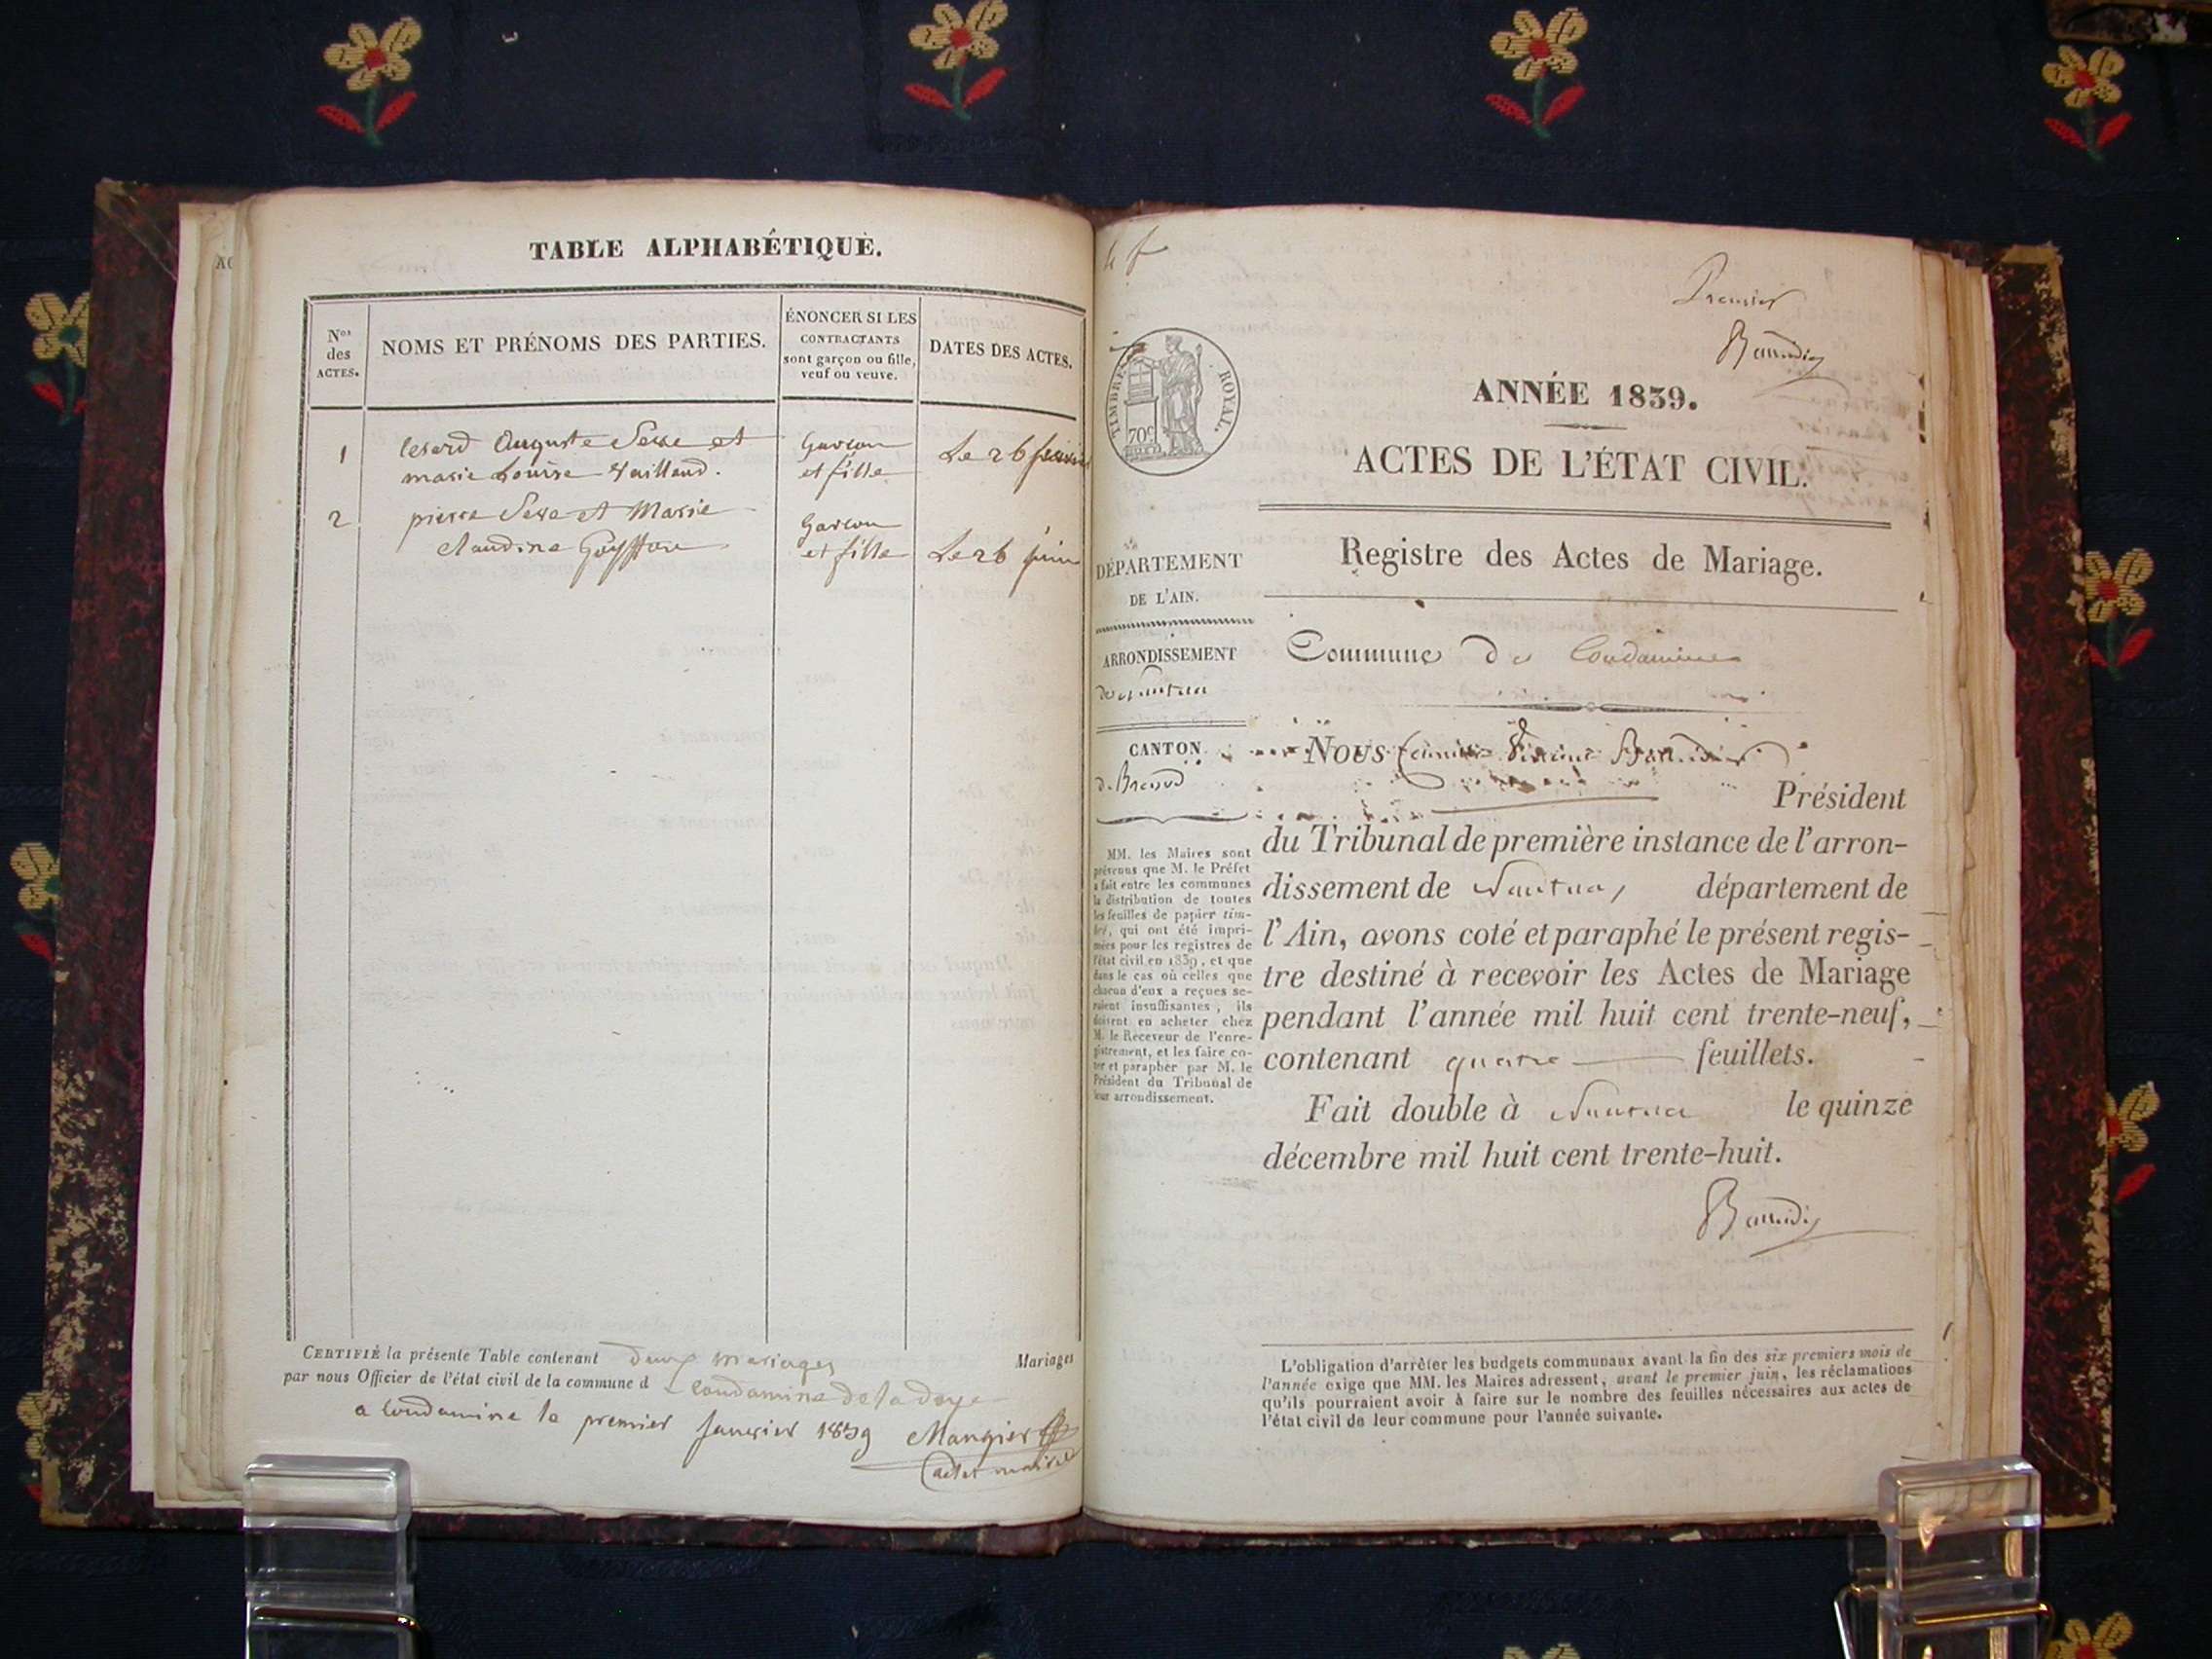 TABLE ALPHABÉTIQUE.
Nos des ACTES.
NOMS ET PRÉNOMS DES PARTIES.
ÉNONCER SI LES
CONTRACTANTS
sont garçon ou fille,
veuf ou veuve.
DATES DES ACTES.
1
Auguste et
marie Louise Vailland.
Garcon
et fille
Le 26
2
pierre et Marie
claudine
Garcon
et fille
Le 26 juin
CERTIFIÉ la présente Table contenant deux mariages Mariages
par nous Officier de l'état civil de la commune d Condamine de la doye
a Condamine le premier janvier 1839 Mangier
Premier
Baudin
TIMBRE ROYAL.
70c
ANNÉE 1839.
ACTES DE L'ÉTAT CIVIL.
Registre des Actes de Mariage.
DÉPARTEMENT
DE L'AIN.
ARRONDISSEMENT
de Nantua
CANTON
de Brenod
MM. les Maires sont
prévenus que M. le Préfet
a fait entre les communes
la distribution de toutes
les feuilles de papier tim-
bré, qui ont été impri-
mées pour les registres de
l'état civil en 1839, et que
dans le cas où celles que
chacun d'eux a reçues se-
raient insuffisantes, ils
doivent en acheter chez
M. le Receveur de l'enre-
gistrement, et les faire co-
ter et parapher par M. le
Président du Tribunal de
leur arrondissement.
Commune de Condamine
Nous
Président
du Tribunal de première instance de l'arron-
dissement de Nantua, département de
l'Ain, avons coté et paraphé le présent regis-
tre destiné à recevoir les Actes de Mariage
pendant l'année mil huit cent trente-neuf,
contenant quatre feuillets.
Fait double à Nantua le quinze
décembre mil huit cent trente-huit.
Baudin
L'obligation d'arrêter les budgets communaux avant la fin des six premiers mois de
l'année exige que MM. les Maires adressent, avant le premier juin, les réclamations
qu'ils pourraient avoir à faire sur le nombre des feuilles nécessaires aux actes de
l'état civil de leur commune pour l'année suivante.